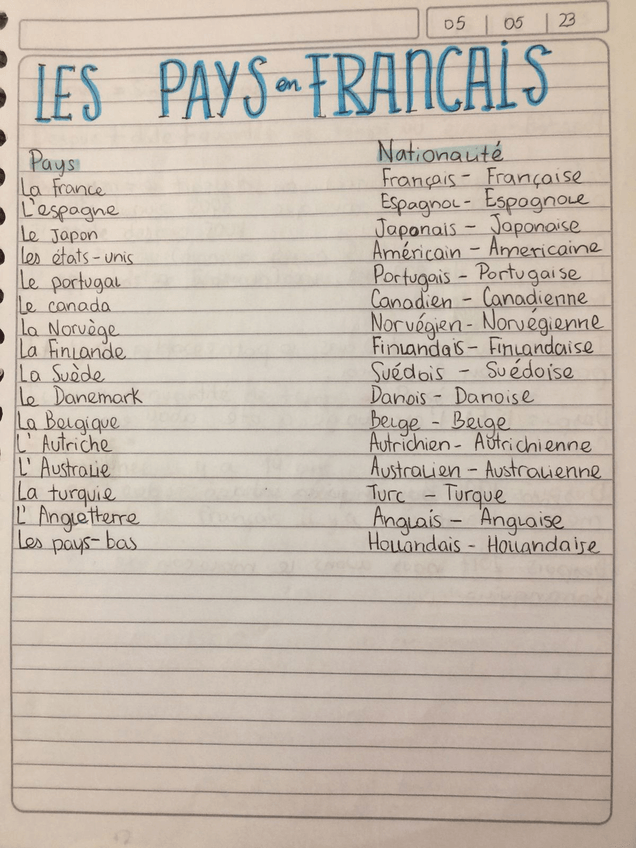 05 | 05 | 23
LES PAYS en FRANCAIS
Pays Nationalité
La France Français - Française
L'espagne Espagnol - Espagnole
Le Japon Japonais - Japonaise
Les états-unis Américain - Americaine
Le portugal Portugais - Portugaise
Le canada Canadien - Canadienne
La Norvège Norvégien - Norvégienne
La Finlande Finlandais - Finlandaise
La Suède Suédois - Suédoise
Le Danemark Danois - Danoise
La Belgique Belge - Belge
L'Autriche Autrichien - Autrichienne
L'Australie Australien - Australienne
La turquie Turc - Turque
L'Angletterre Anglais - Anglaise
Les pays-bas Hollandais - Hollandaise